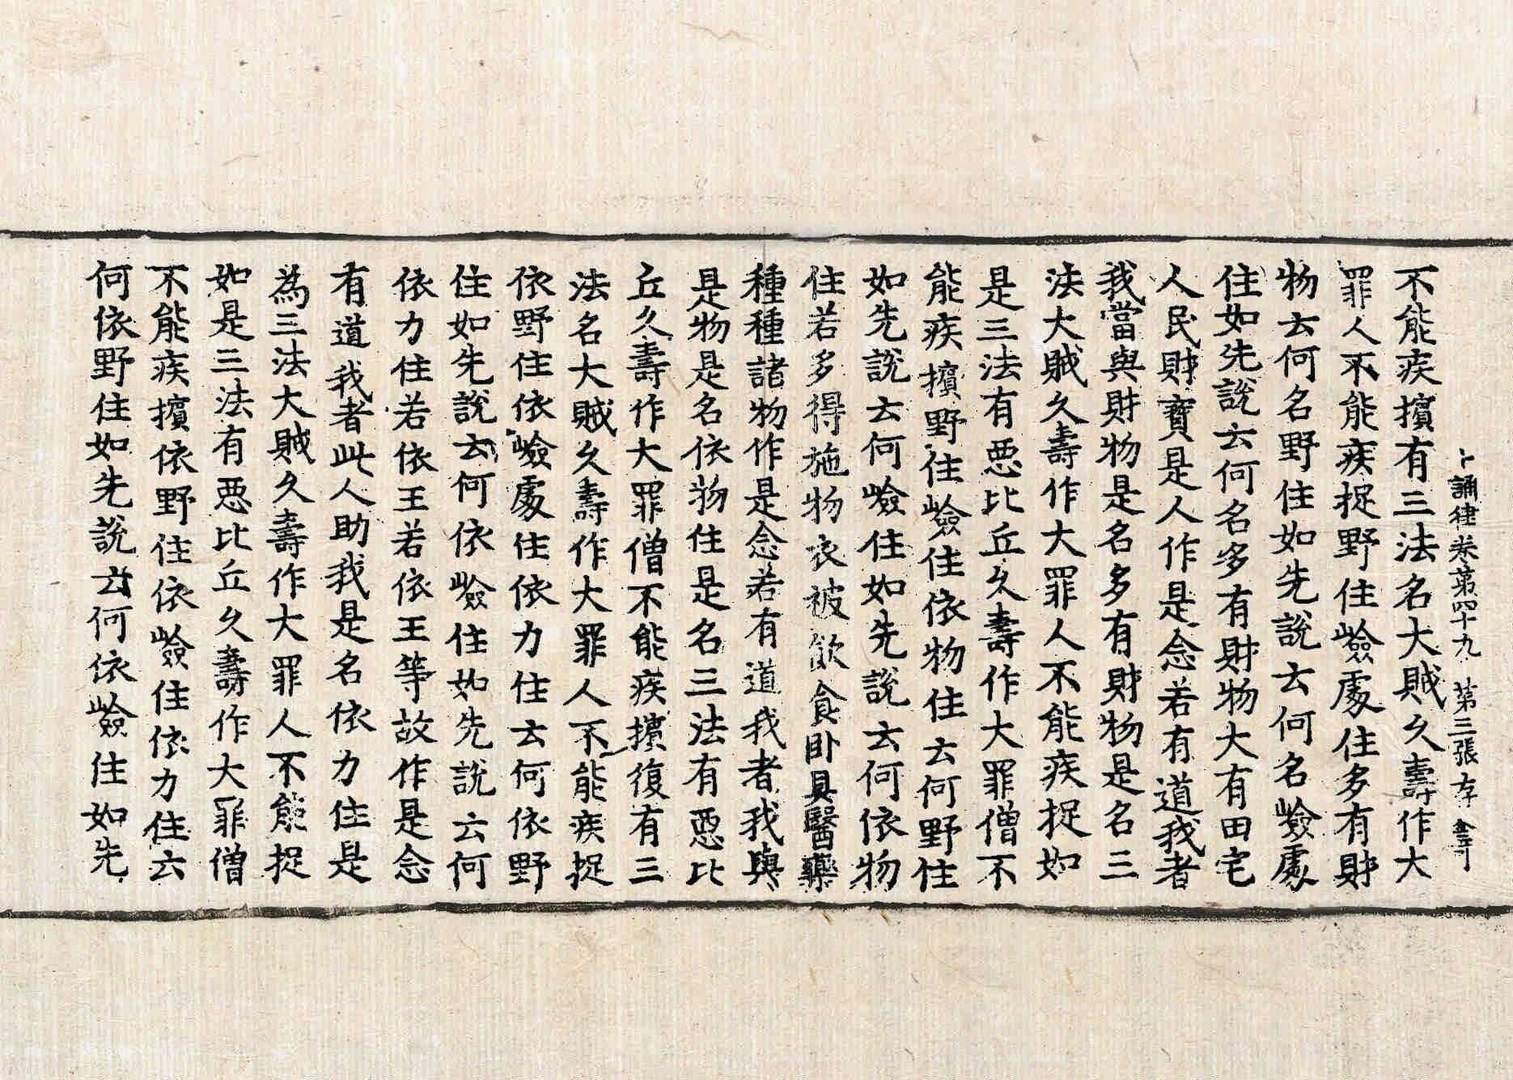 誦律卷第四十九 第三張
不能疾擯有三法名大賊久壽作大
罪人不能疾捉野住嶮處住多有財
物云何名野住如先說云何名嶮處
住如先說云何名多有財物大有田宅
人民財寶是人作是念若有道我者
我當與財物是名多有財物是名三
法大賊久壽作大罪人不能疾捉如
是三法有惡比丘久壽作大罪僧不
能疾擯野住嶮住依物住云何野住
如先說云何嶮住如先說云何依物
住若多得施物衣被飲食卧具醫藥
種種諸物作是念若有道我者我與
是物是名依物住是名三法有惡比
丘久壽作大罪僧不能疾擯復有三
法名大賊久壽作大罪人不能疾捉
依野住依嶮處住依力住云何依野
住如先說云何依嶮住如先說云何
依力住若依王若依王等故作是念
有道我者此人助我是名依力住是
為三法大賊久壽作大罪人不能捉
如是三法有惡比丘久壽作大罪僧
不能疾擯依野住依嶮住依力住云
何依野住如先說云何依嶮住如先